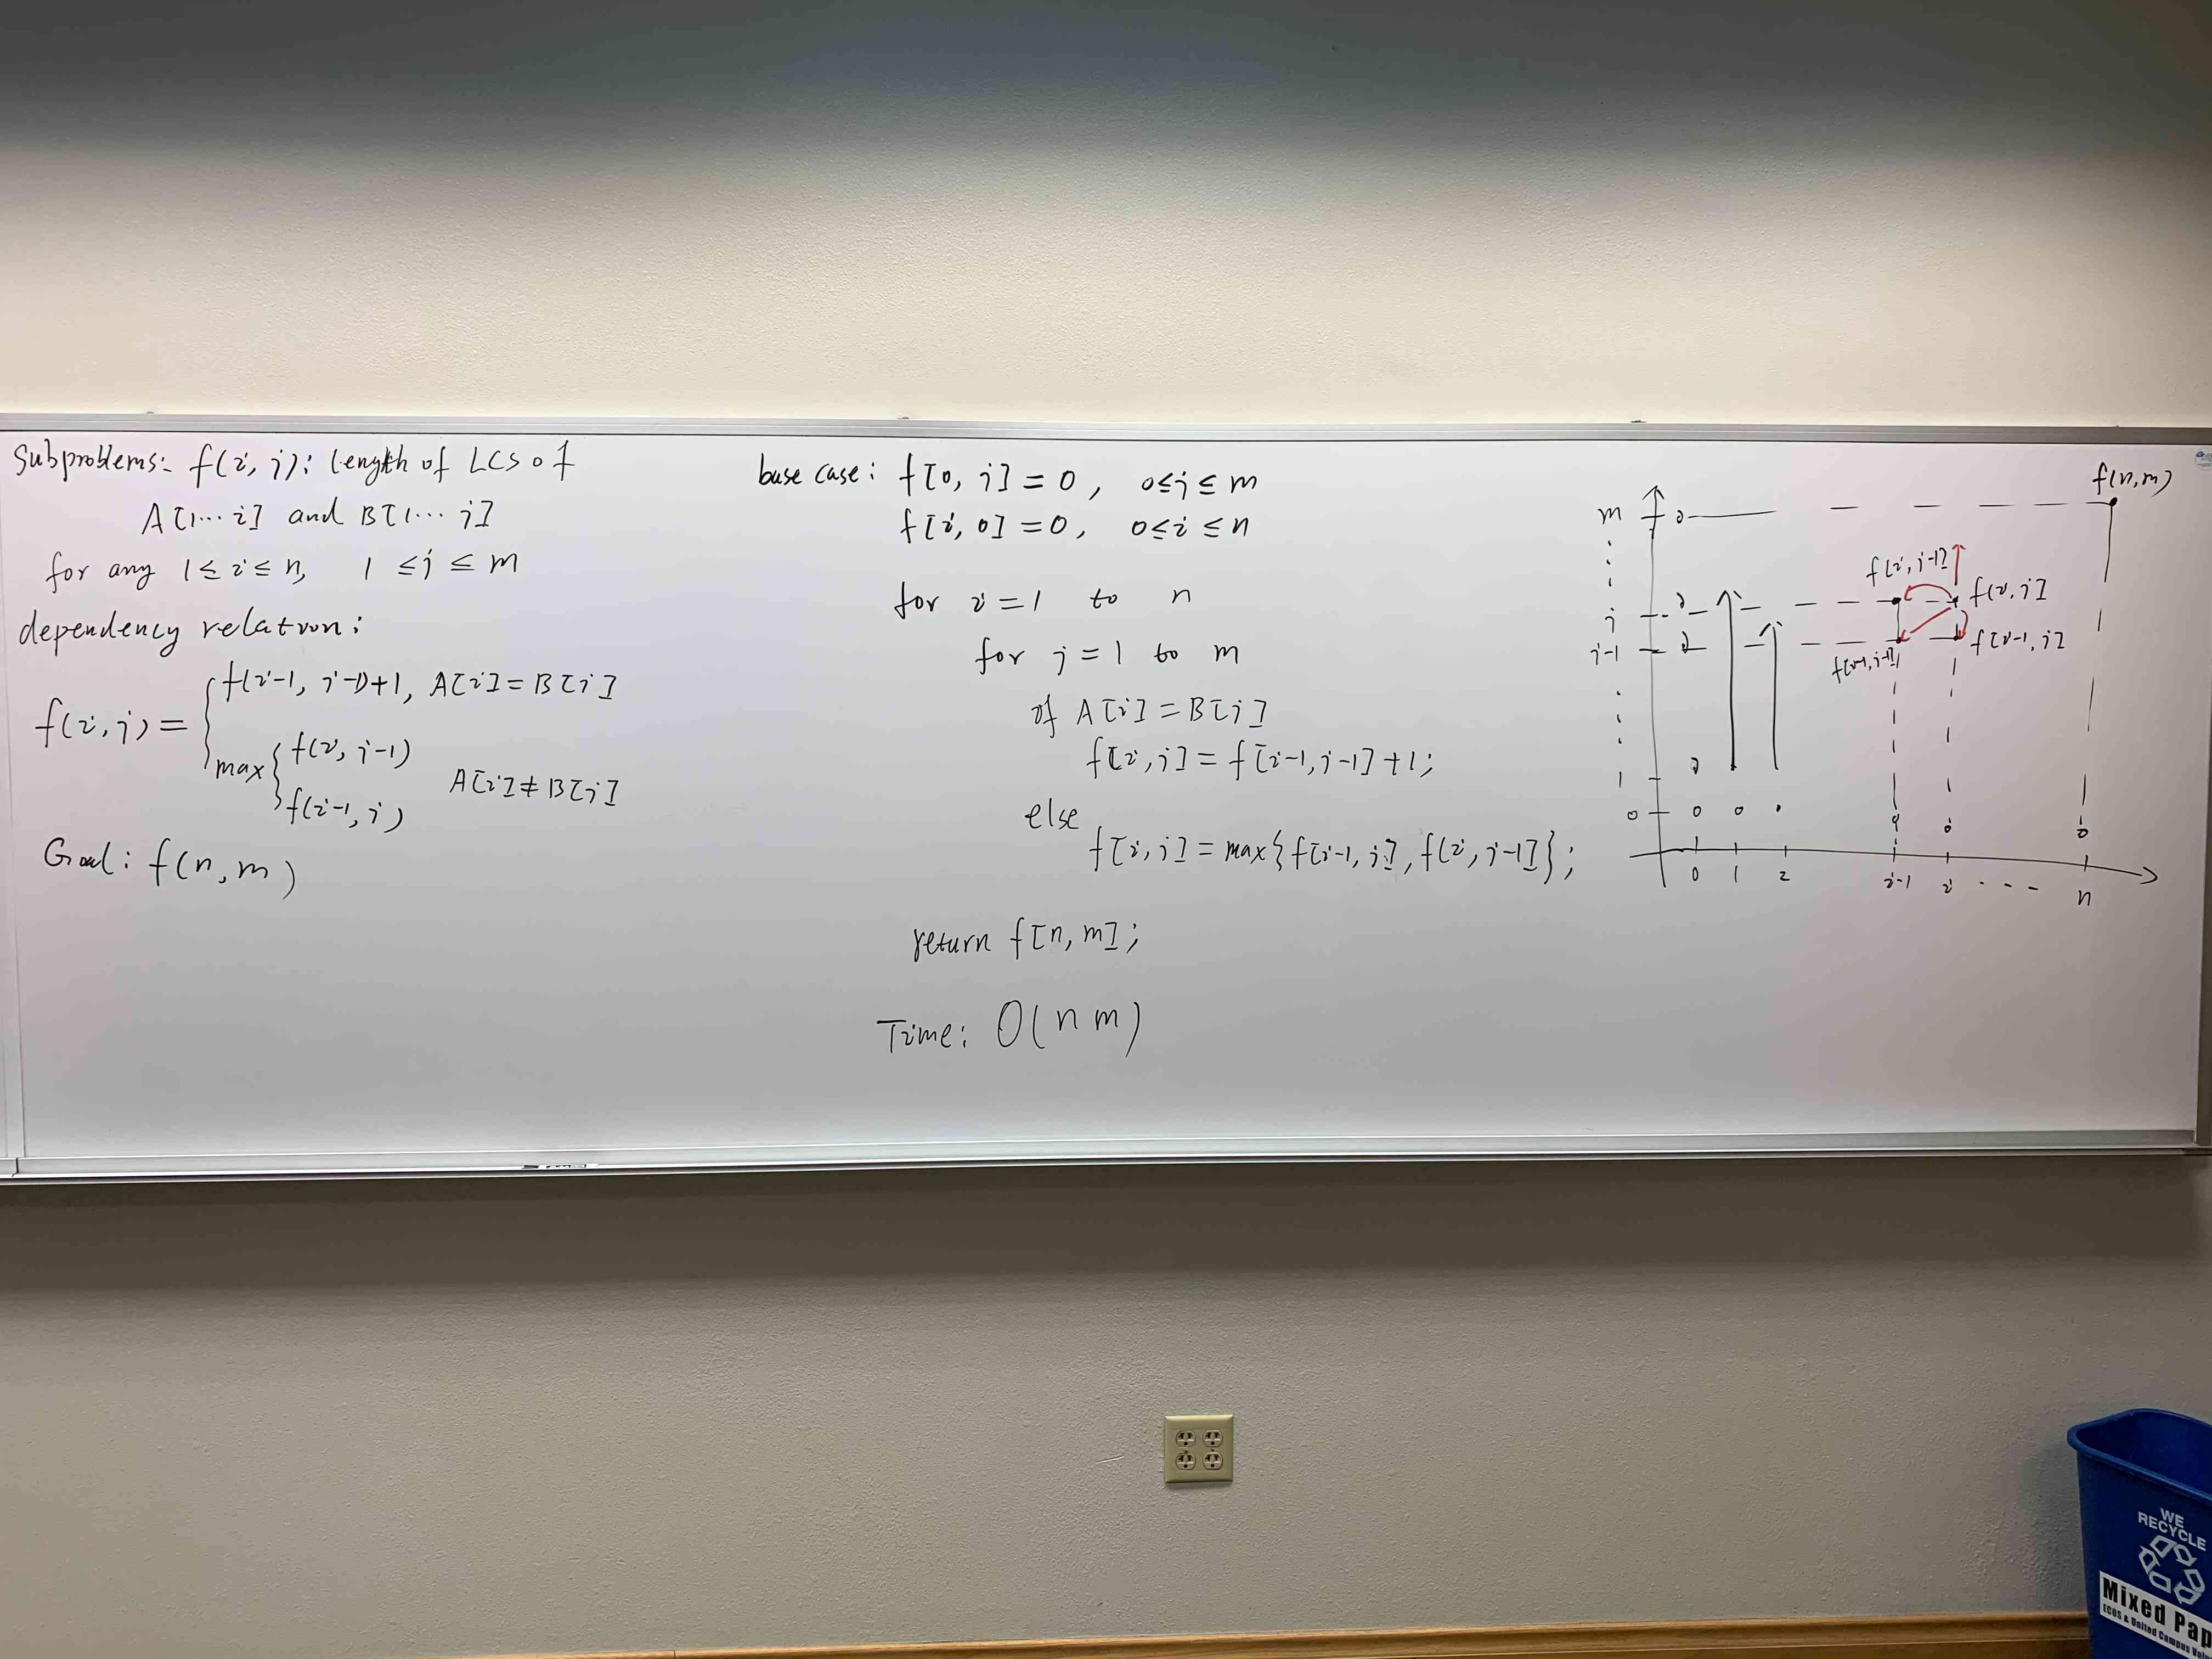 Subproblems: f(i, j): length of LCS of
A[1... i] and B[1... j]
for any 1≤i≤n, 1≤j≤m
dependency relation:
f(i,j) =
f(i-1, j-1)+1, A[i]=B[j]
max
f(i, j-1)
f(i-1, j)
A[i]≠B[j]
Goal: f(n,m)
base case: f[0, j]=0, 0≤j≤m
f[i, 0]=0, 0≤i≤n
for i=1 to n
for j=1 to m
if A[i]=B[j]
f[i,j]=f[i-1,j-1]+1;
else
f[i,j]=max{f[i-1, j], f(i, j-1]};
return f[n,m];
Time: O(nm)
f(n,m)
m
f[i, j-1]
f(i, j]
j
j-1
f[i-1, j]
f[i-1, j-1]
1
0 0 0
0 1 2 i-1 i - - - n
WE
RECYCLE
Mixed Pap
ECOS & United Campus